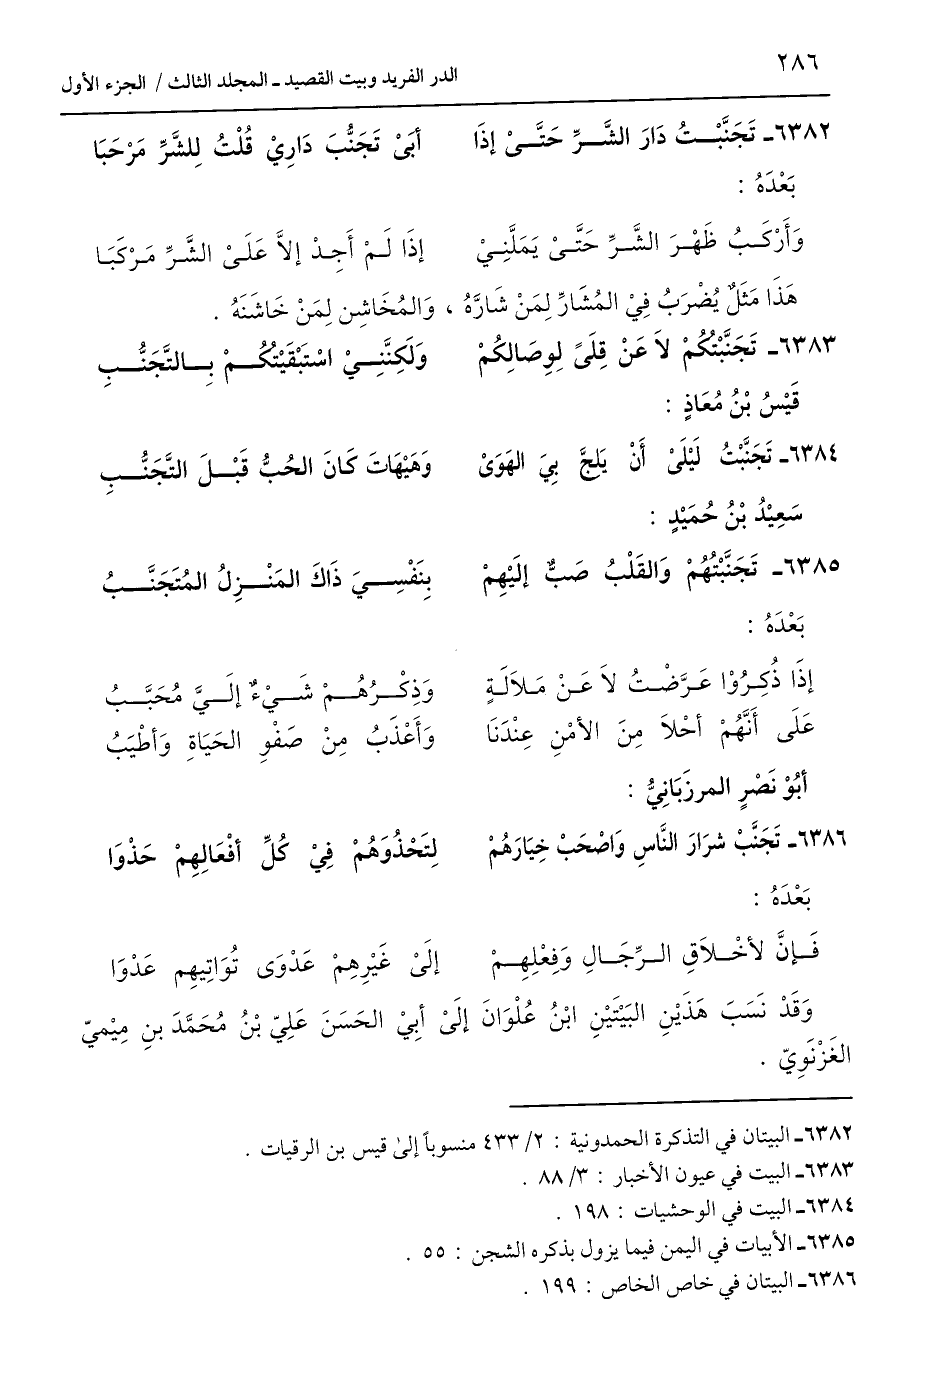 ٢٨٦
الدر الفريد وبيت القصيد ـ المجلد الثالث / الجزء الأول
٦٣٨٢ـ تَجَنَّبْتُ دَارَ الشَّرِّ حَتَّىْ إذَا أبَىْ تَجَنُّبَ دَارِيْ قُلْتُ لِلشَّرِّ مَرْحَبَا
بَعْدَهُ :
وَأَرْكَبُ ظَهْرَ الشَّرِّ حَتَّىْ يَمَلَّنِيْ إذَا لَمْ أَجِدْ إلاَّ عَلَىْ الشَّرِّ مَرْكَبَا
هَذَا مَثَلٌ يُضْرَبُ فِيْ المُشَارِّ لِمَنْ شَارَّهُ ، وَالمُخَاشِنِ لِمَنْ خَاشَنَهُ .
٦٣٨٣ـ تَجَنَّبْتُكُمْ لاَ عَنْ قِلَىً لِوِصَالِكُمْ وَلَكِنَّنِيْ اسْتَبْقَيْتُكُمْ بِالتَّجَنُّبِ
قَيْسُ بْنُ مُعَاذٍ :
٦٣٨٤ـ تَجَنَّبْتُ لَيْلَىْ أَنْ يَلِجَّ بِيَ الهَوَىْ وَهَيْهَاتَ كَانَ الحُبُّ قَبْلَ التَّجَنُّبِ
سَعِيْدُ بْنُ حُمَيْدٍ :
٦٣٨٥ـ تَجَنَّبْتُهُمْ وَالقَلْبُ صَبٌّ إلَيْهِمْ بِنَفْسِيَ ذَاكَ المَنْزِلُ المُتَجَنَّبُ
بَعْدَهُ :
إذَا ذُكِرُوْا عَرَّضْتُ لاَ عَنْ مَلاَلَةٍ وَذِكْرُهُمْ شَيْءٌ إلَيَّ مُحَبَّبُ
عَلَى أنَّهُمْ أحْلاَ مِنَ الأمْنِ عِنْدَنَا وَأَعْذَبُ مِنْ صَفْوِ الحَيَاةِ وَأَطْيَبُ
أَبُوْ نَصْرٍ المرزبَانِيُّ :
٦٣٨٦ـ تَجَنَّبْ شرَارَ النَّاسِ وَاصْحَبْ خِيَارَهُمْ لِتَحْذُوَهُمْ فِيْ كُلِّ أفْعَالِهِمْ حَذْوَا
بَعْدَهُ :
فَإنَّ لأخْلاَقِ الرِّجَالِ وَفِعْلِهِمْ إلَىْ غَيْرِهِمْ عَدْوَى تُوَاتِيهِم عَدْوَا
وَقَدْ نَسَبَ هَذَيْنِ البَيْتَيْنِ ابْنُ عُلْوَانَ إلَىْ أبِيْ الحَسَنَ عَلِيّ بْنُ مُحَمَّدَ بنِ مِيْمِيّ
الغَزْنَوِيّ .
٦٣٨٢ـ البيتان في التذكرة الحمدونية : ٢/ ٤٣٣ منسوباً إلىٰ قيس بن الرقيات .
٦٣٨٣ـ البيت في عيون الأخبار : ٣/ ٨٨ .
٦٣٨٤ـ البيت في الوحشيات : ١٩٨ .
٦٣٨٥ـ الأبيات في اليمن فيما يزول بذكره الشجن : ٥٥ .
٦٣٨٦ـ البيتان في خاص الخاص : ١٩٩ .